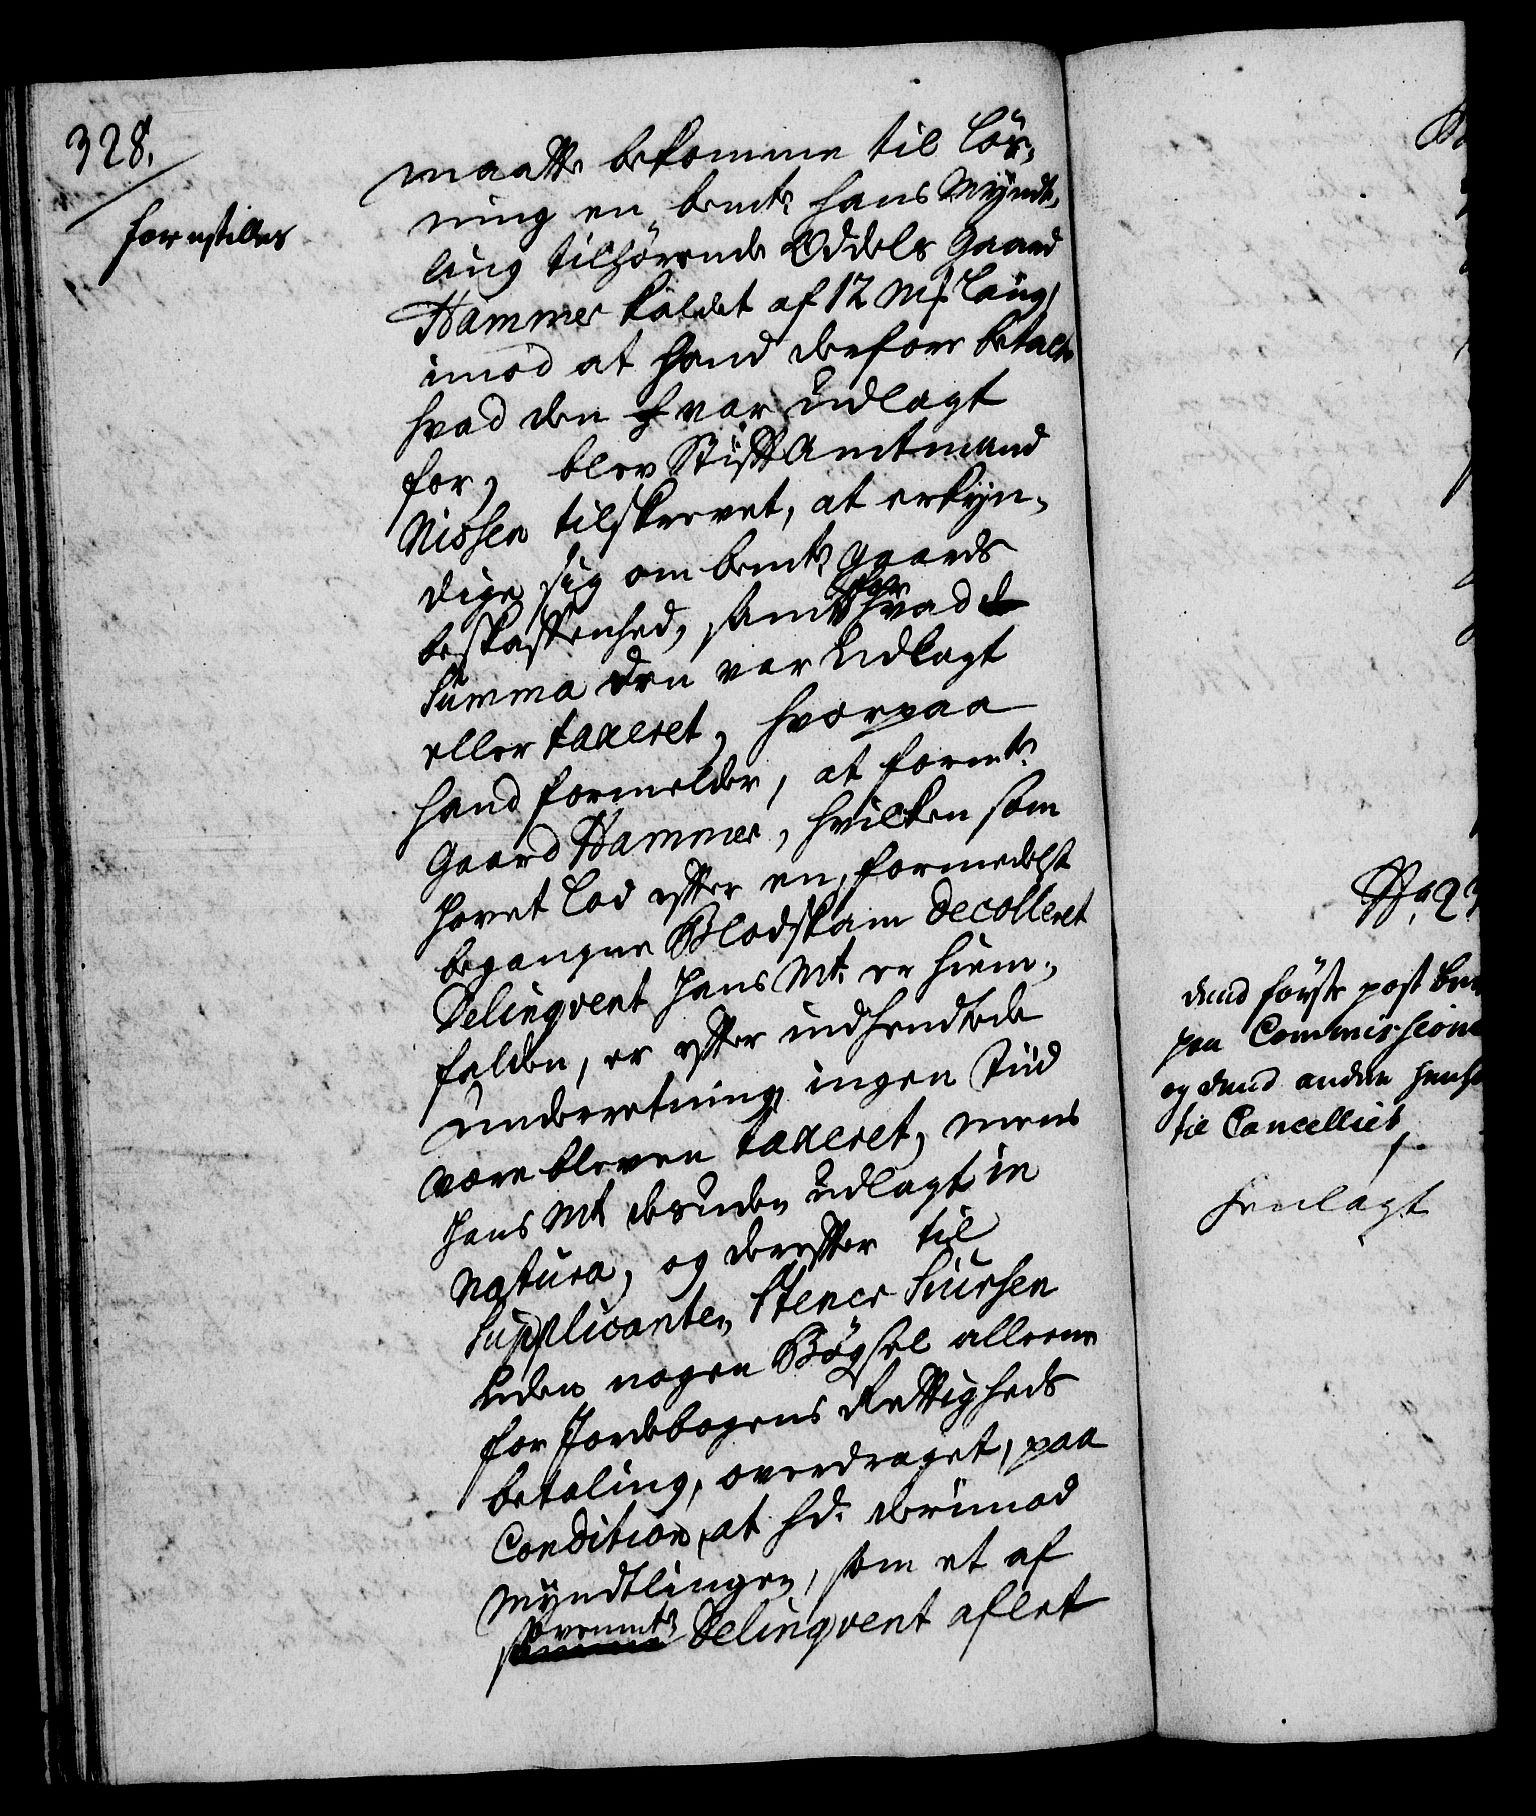 328.
forestilles
maatte bekomme til Løs-
ning en bemte hans Myndt-
ling tilhørende Oddels Gaard
Hammer kaldet af 12 Mk Laug,
imod at hand derfore betalte
hvad den var udlagt
for, blev Stift Amtmand
Nissen tilskrevet, at erkyn-
dige sig om bemte Gaards
beskaffenhed, samt for hvad
Summa den var udlagt
eller taxeret, hvorpaa
hand formelder, at formte
Gaard Hammer, hvilken som
Hovet Lod efter en, formedelst
begangne Blodskam decolleret
Delinqvent Hans Mt. er hiem-
falden, er efter indhendtede
underretning ingen Tiid
være bleven taxeret, mens
Hans Mt desuden udlagt in
Natura, og derefter til
Supplicanten Stener Siursen
uden nogen Bøgsel alleene
for Jordebogens Rettigheds
betaling, overdraget, paa
Condition, at hd. derimod
Myndtlingen, som et af
ovennte Delinqvent aflet
dend første post
paa Commissione
og dend anden
til Cancelliet
henlagt